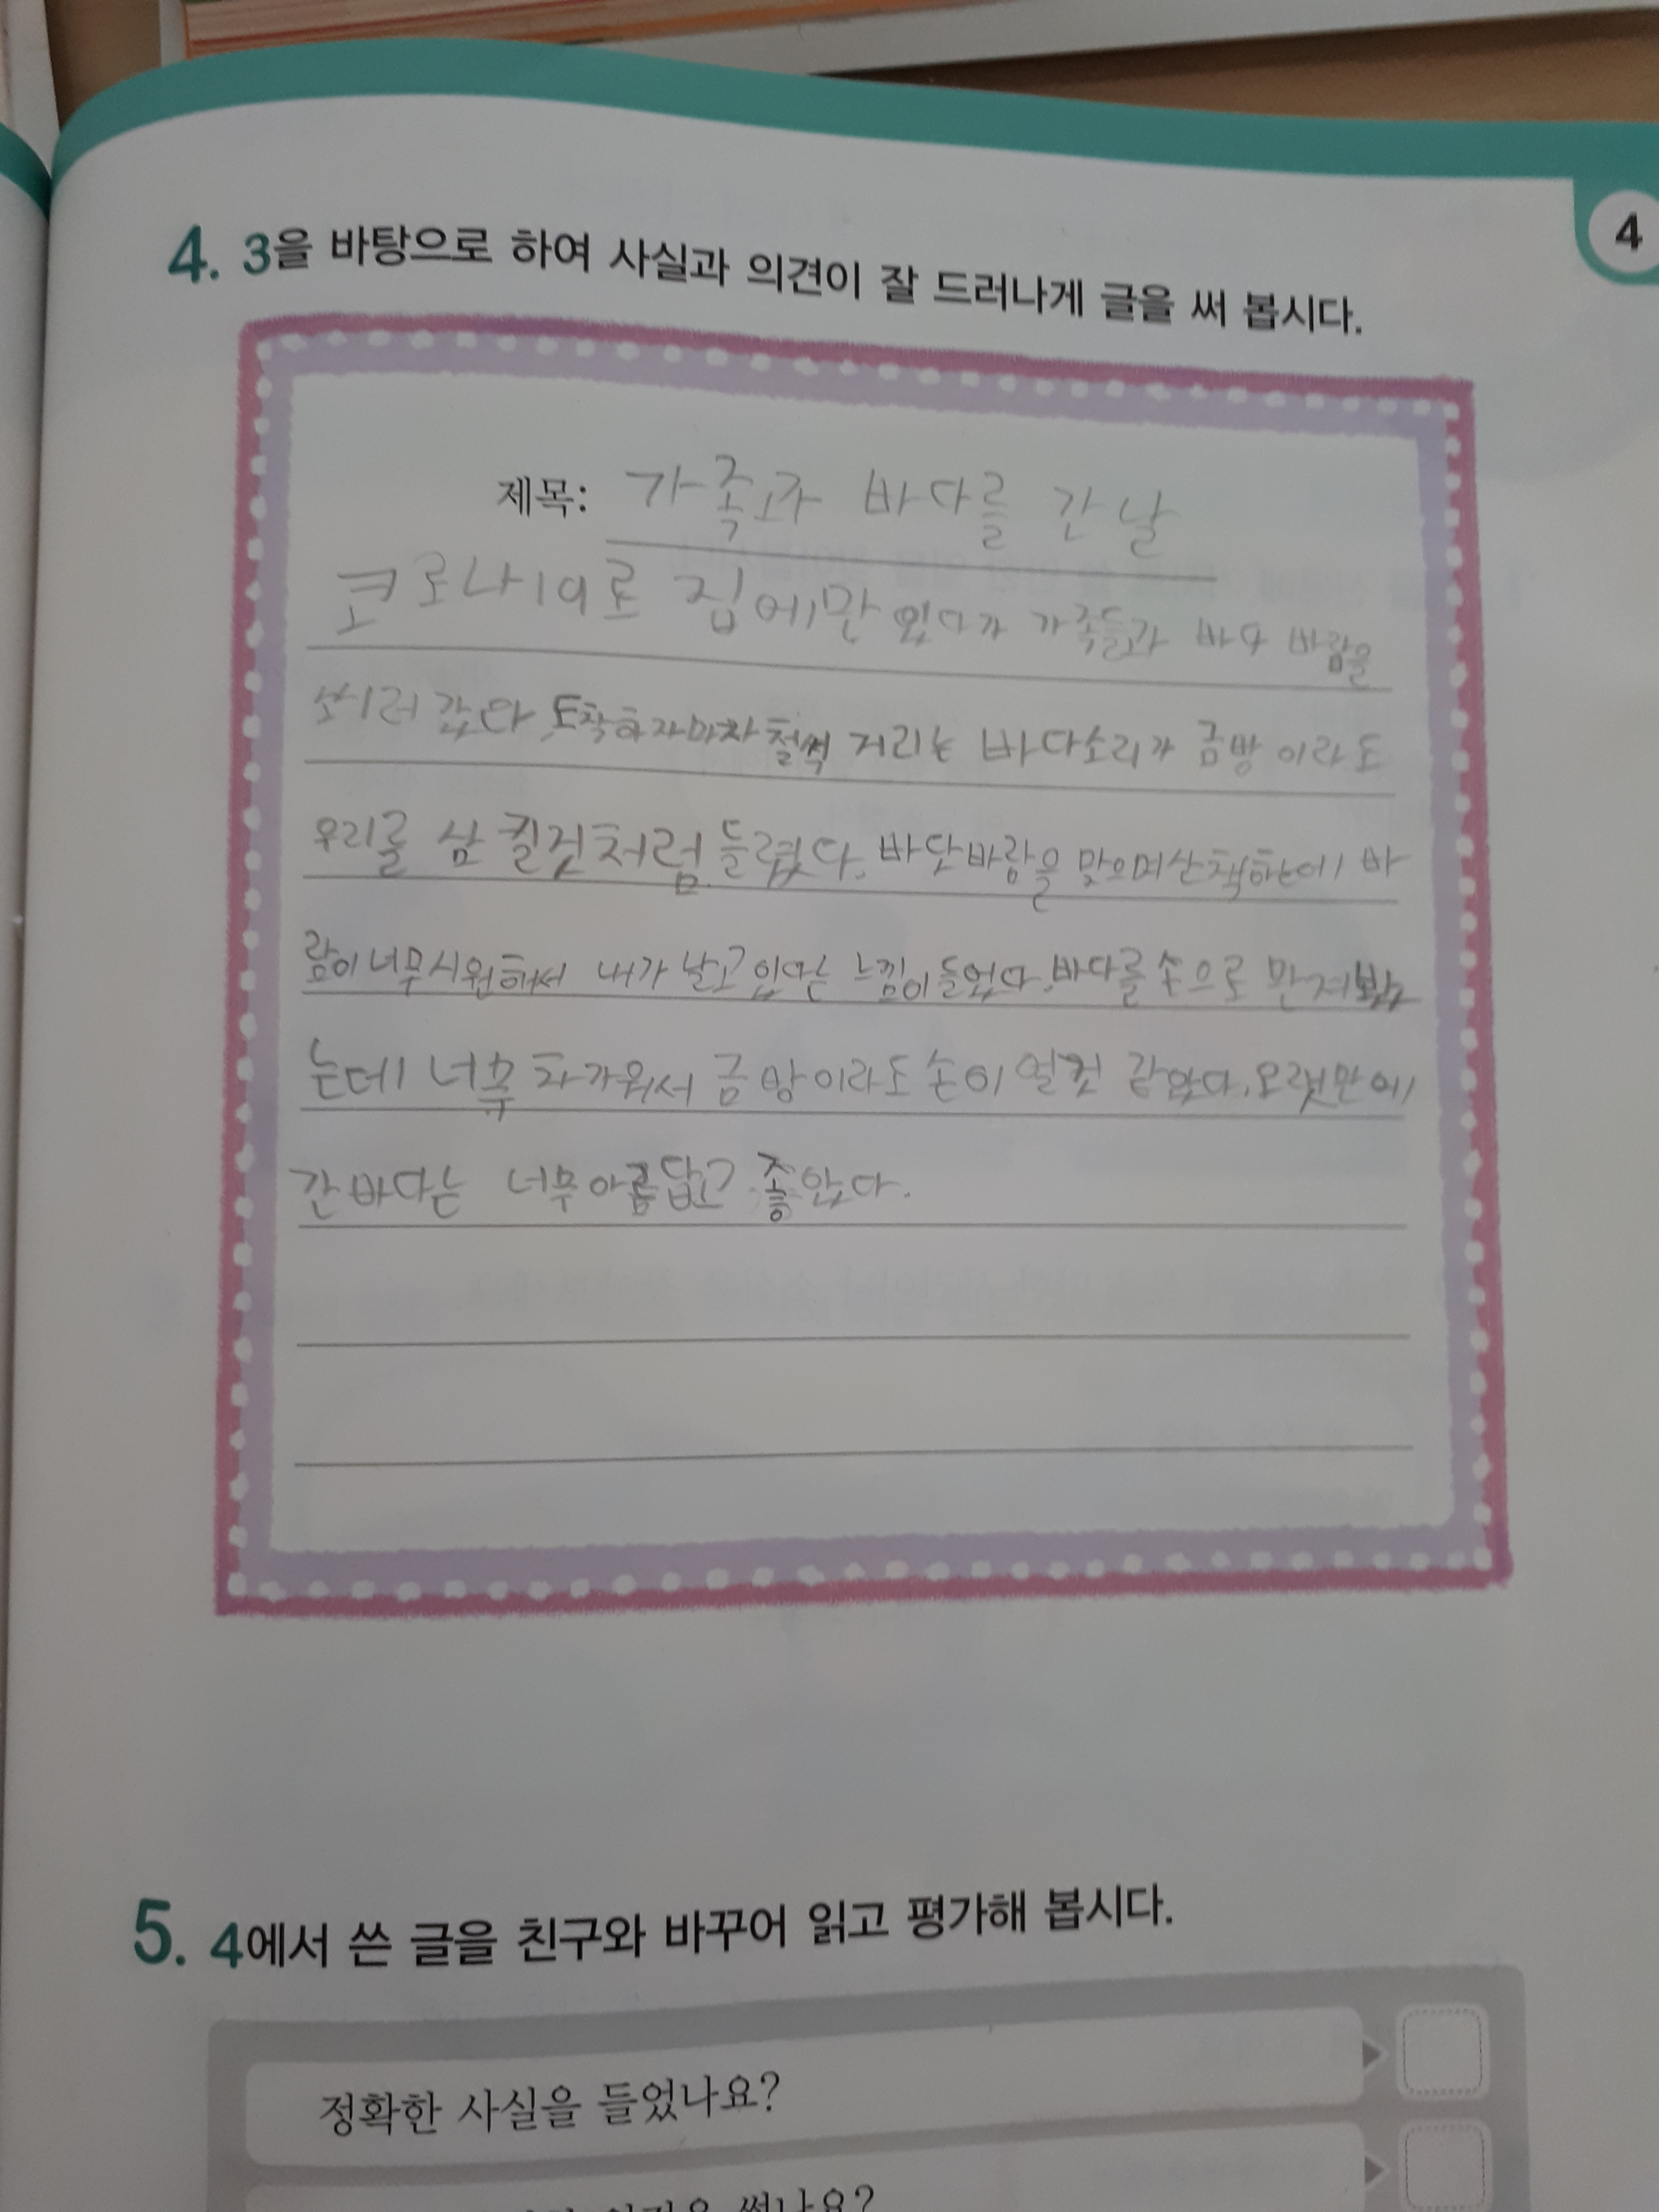 4
4. 3을 바탕으로 하여 사실과 의견이 잘 드러나게 글을 써 봅시다.
제목: 가족과 바다를 간 날
코로나19로 집에만 있다가 가족들과 바다 바람을
쐬러 갔다. 도착하자마자 철썩 거리는 바다소리가 금방 이라도
우리를 삼킬것처럼 들렸다. 바닷바람을 맞으며 산책하는데 바
람이 너무 시원해서 내가 날고 있다는 느낌이 들었다. 바다를 손으로 만져봤
는데 너무 차가워서 금방이라도 손이 얼것 같았다. 오랫만에
간 바다는 너무 아름답고 좋았다.
5. 4에서 쓴 글을 친구와 바꾸어 읽고 평가해 봅시다.
정확한 사실을 들었나요?
썼나요?